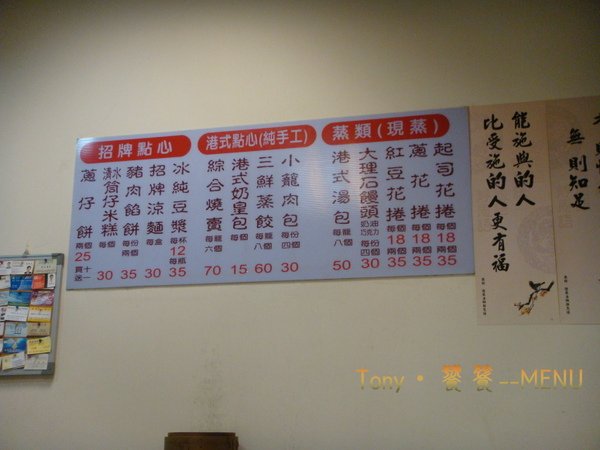 招牌點心
蔥仔餅 兩個25 買十一送一
筒仔米糕 每個30
豬肉餡餅 每份兩個35
招牌涼麵 每盒30
冰純豆漿 每杯12 每瓶35
港式點心(純手工)
綜合燒賣 每籠六個70
港式奶皇包 每個15
三鮮蒸餃 每籠八個60
小籠肉包 每份四個30
蒸類(現蒸)
港式湯包 每籠八個50
大理石饅頭 奶油 巧克力 每份四個30
紅豆花捲 每個18 兩個35
蔥花捲 每個18 兩個35
起司花捲 每個18 兩個35
能施與的人
比受施的人更有福
無 則知足
Tony • 饕餮--MENU